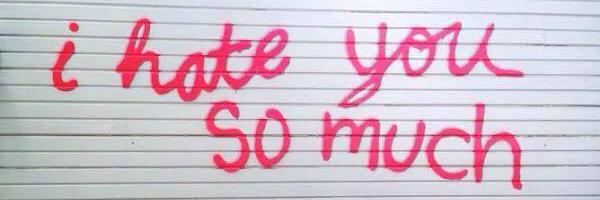 i hate you
so much